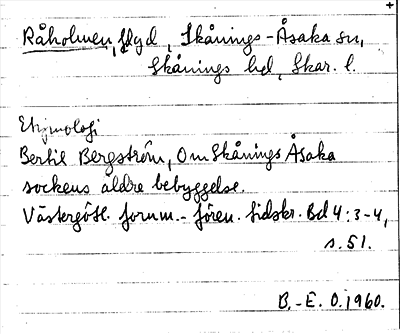 Råholmen, lägd, Skånings-Åsaka sn,
Skånings hd, Skar. l.
Etymologi
Bertil Bergström, Om Skånings Åsaka
sockens äldre bebyggelse.
Västergötl. fornm.-fören. tidskr. Bd 4:3-4,
s. 51.
B.-E. O. 1960.